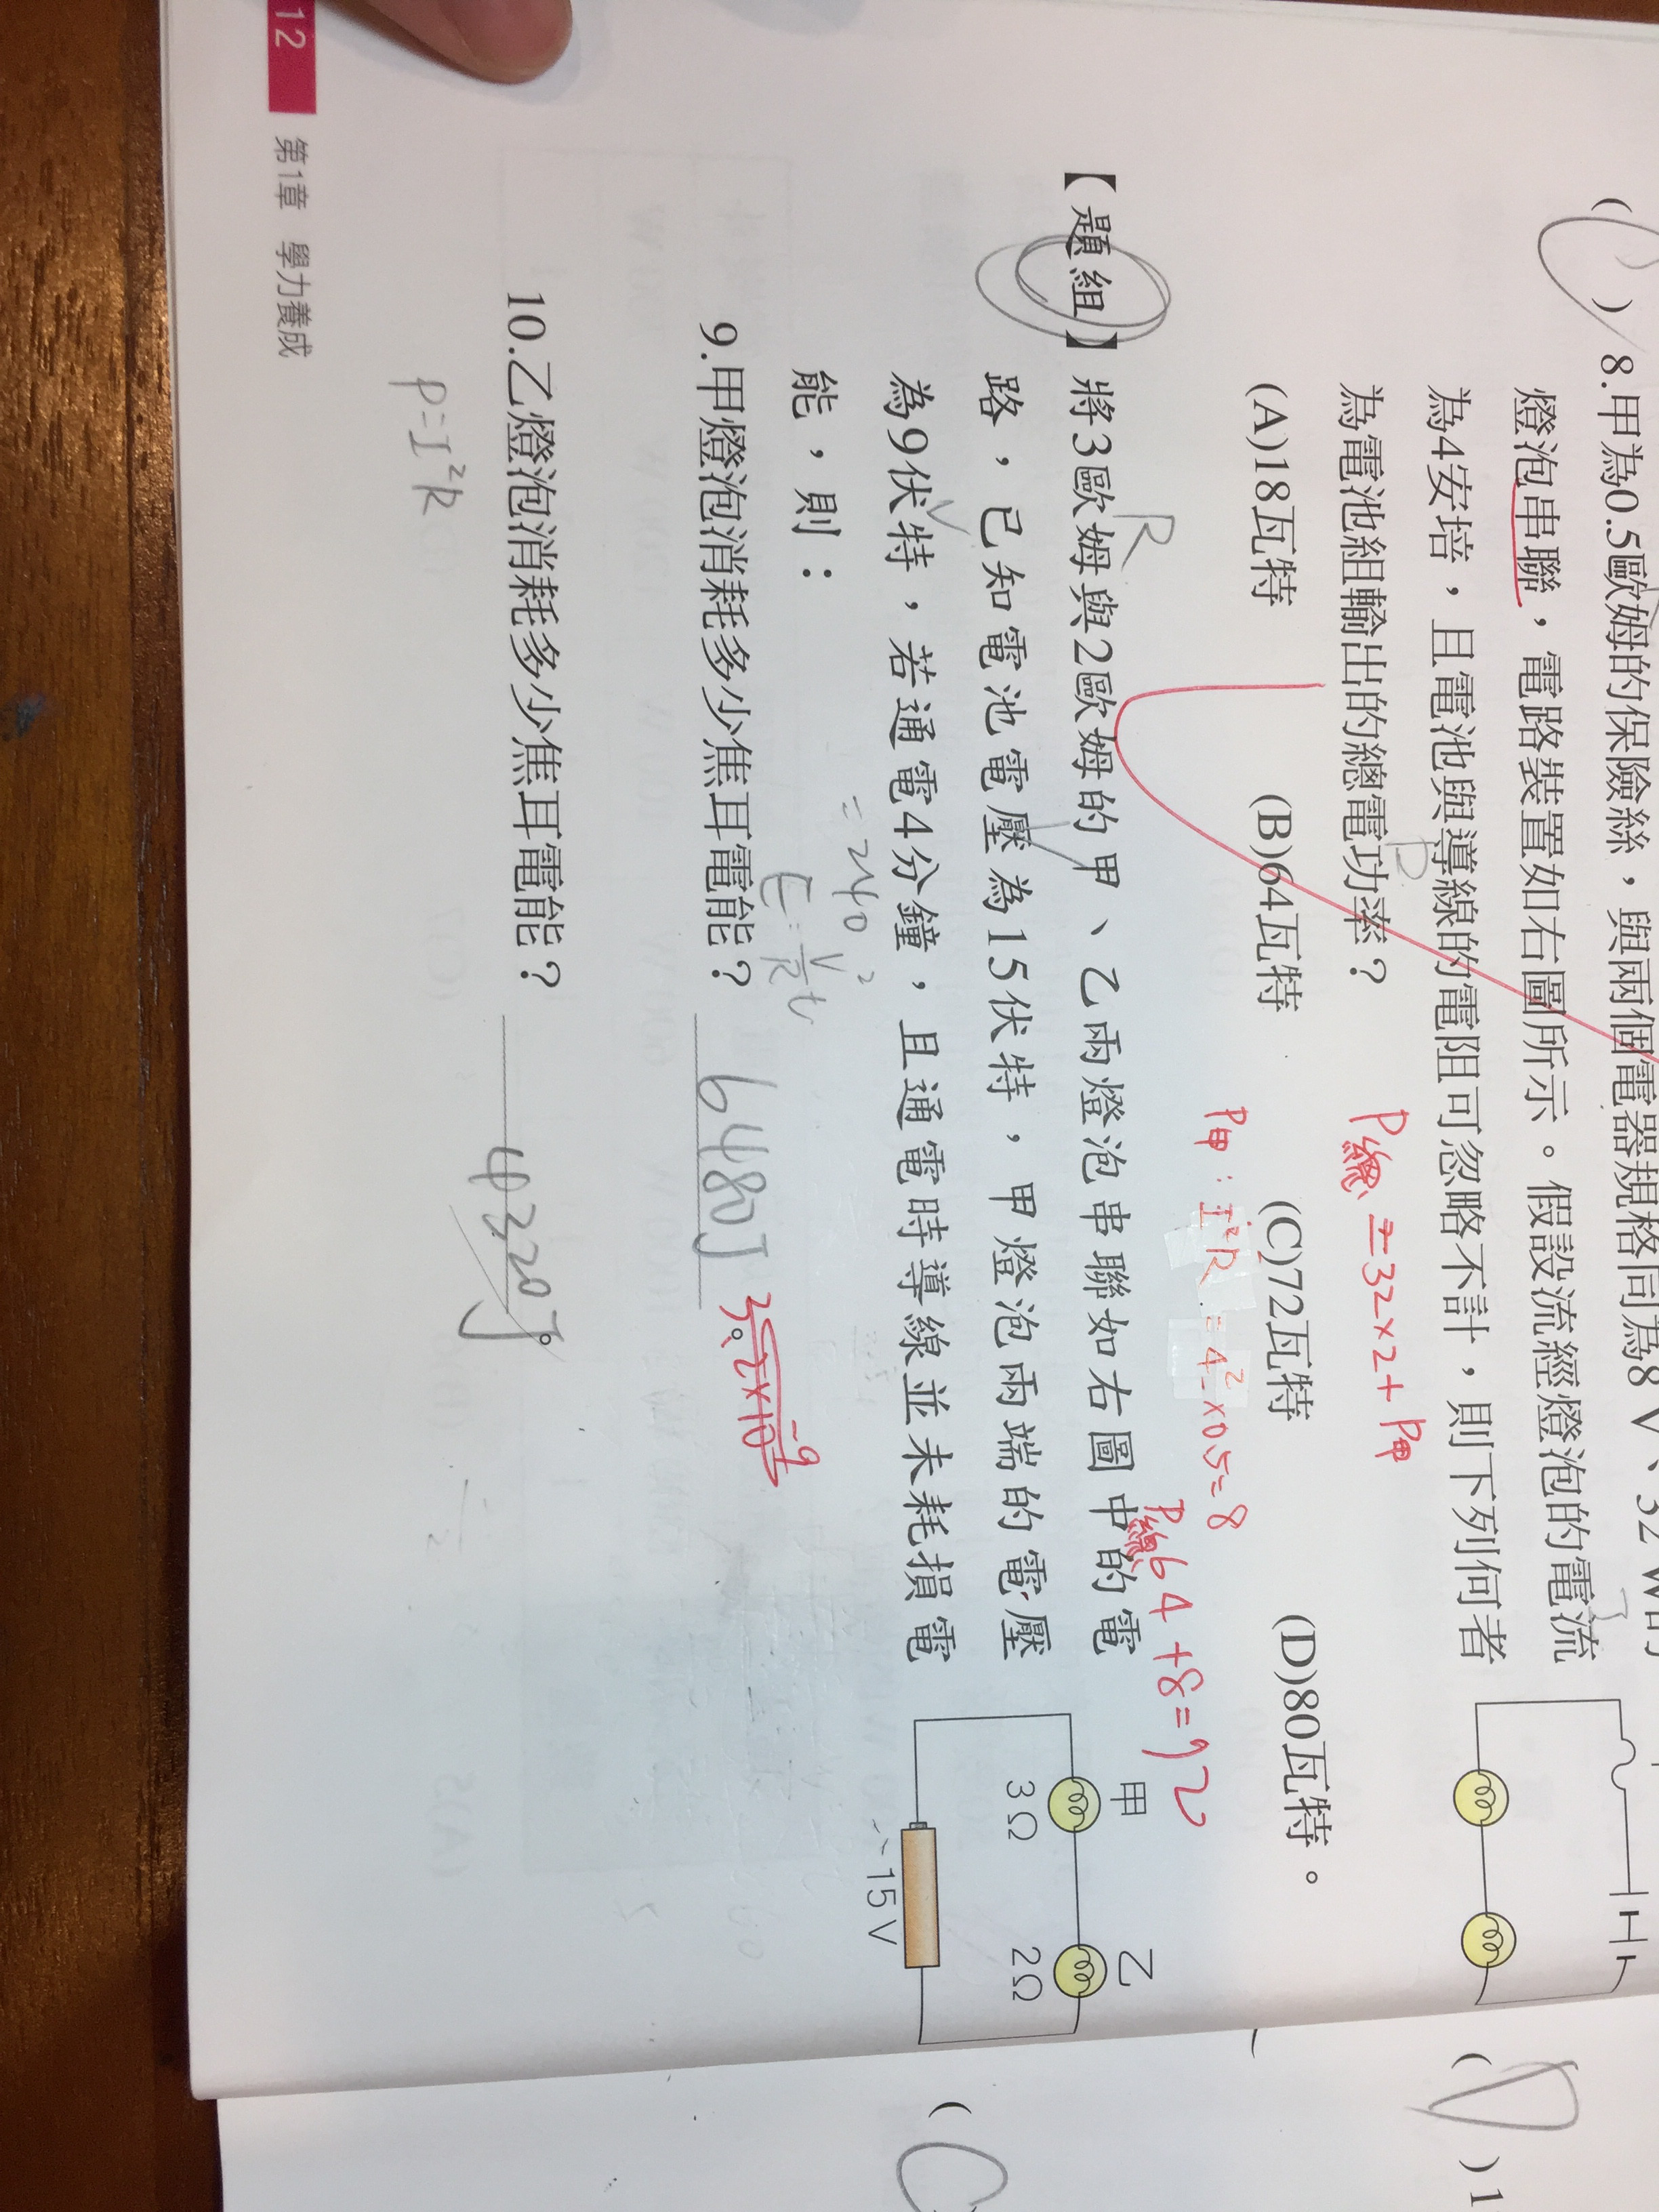 ( C ) 8.甲為0.5歐姆的保險絲，與兩個電器規格同為8 V、32 W的
燈泡串聯，電路裝置如右圖所示。假設流經燈泡的電流
I
為4安培，且電池與導線的電阻可忽略不計，則下列何者
為電池組輸出的總電功率？
P
P總 = 32×2+P甲
(A)18瓦特 (B)64瓦特 (C)72瓦特 (D)80瓦特。
P甲 : I²R = 4²×0.5=8
P總 64+8=72
R
【題組】將3歐姆與2歐姆的甲、乙兩燈泡串聯如右圖中的電
路，已知電池電壓為15伏特，甲燈泡兩端的電壓
V
為9伏特，若通電4分鐘，且通電時導線並未耗損電
能，則：
=240
甲 乙
3Ω 2Ω
15V
E=V²/R t
9.甲燈泡消耗多少焦耳電能？ 6480J 。
3.2×10⁻⁹
10.乙燈泡消耗多少焦耳電能？ 4320J 。
P=I²R
12 第1章 學力養成
( D ) 1
( C